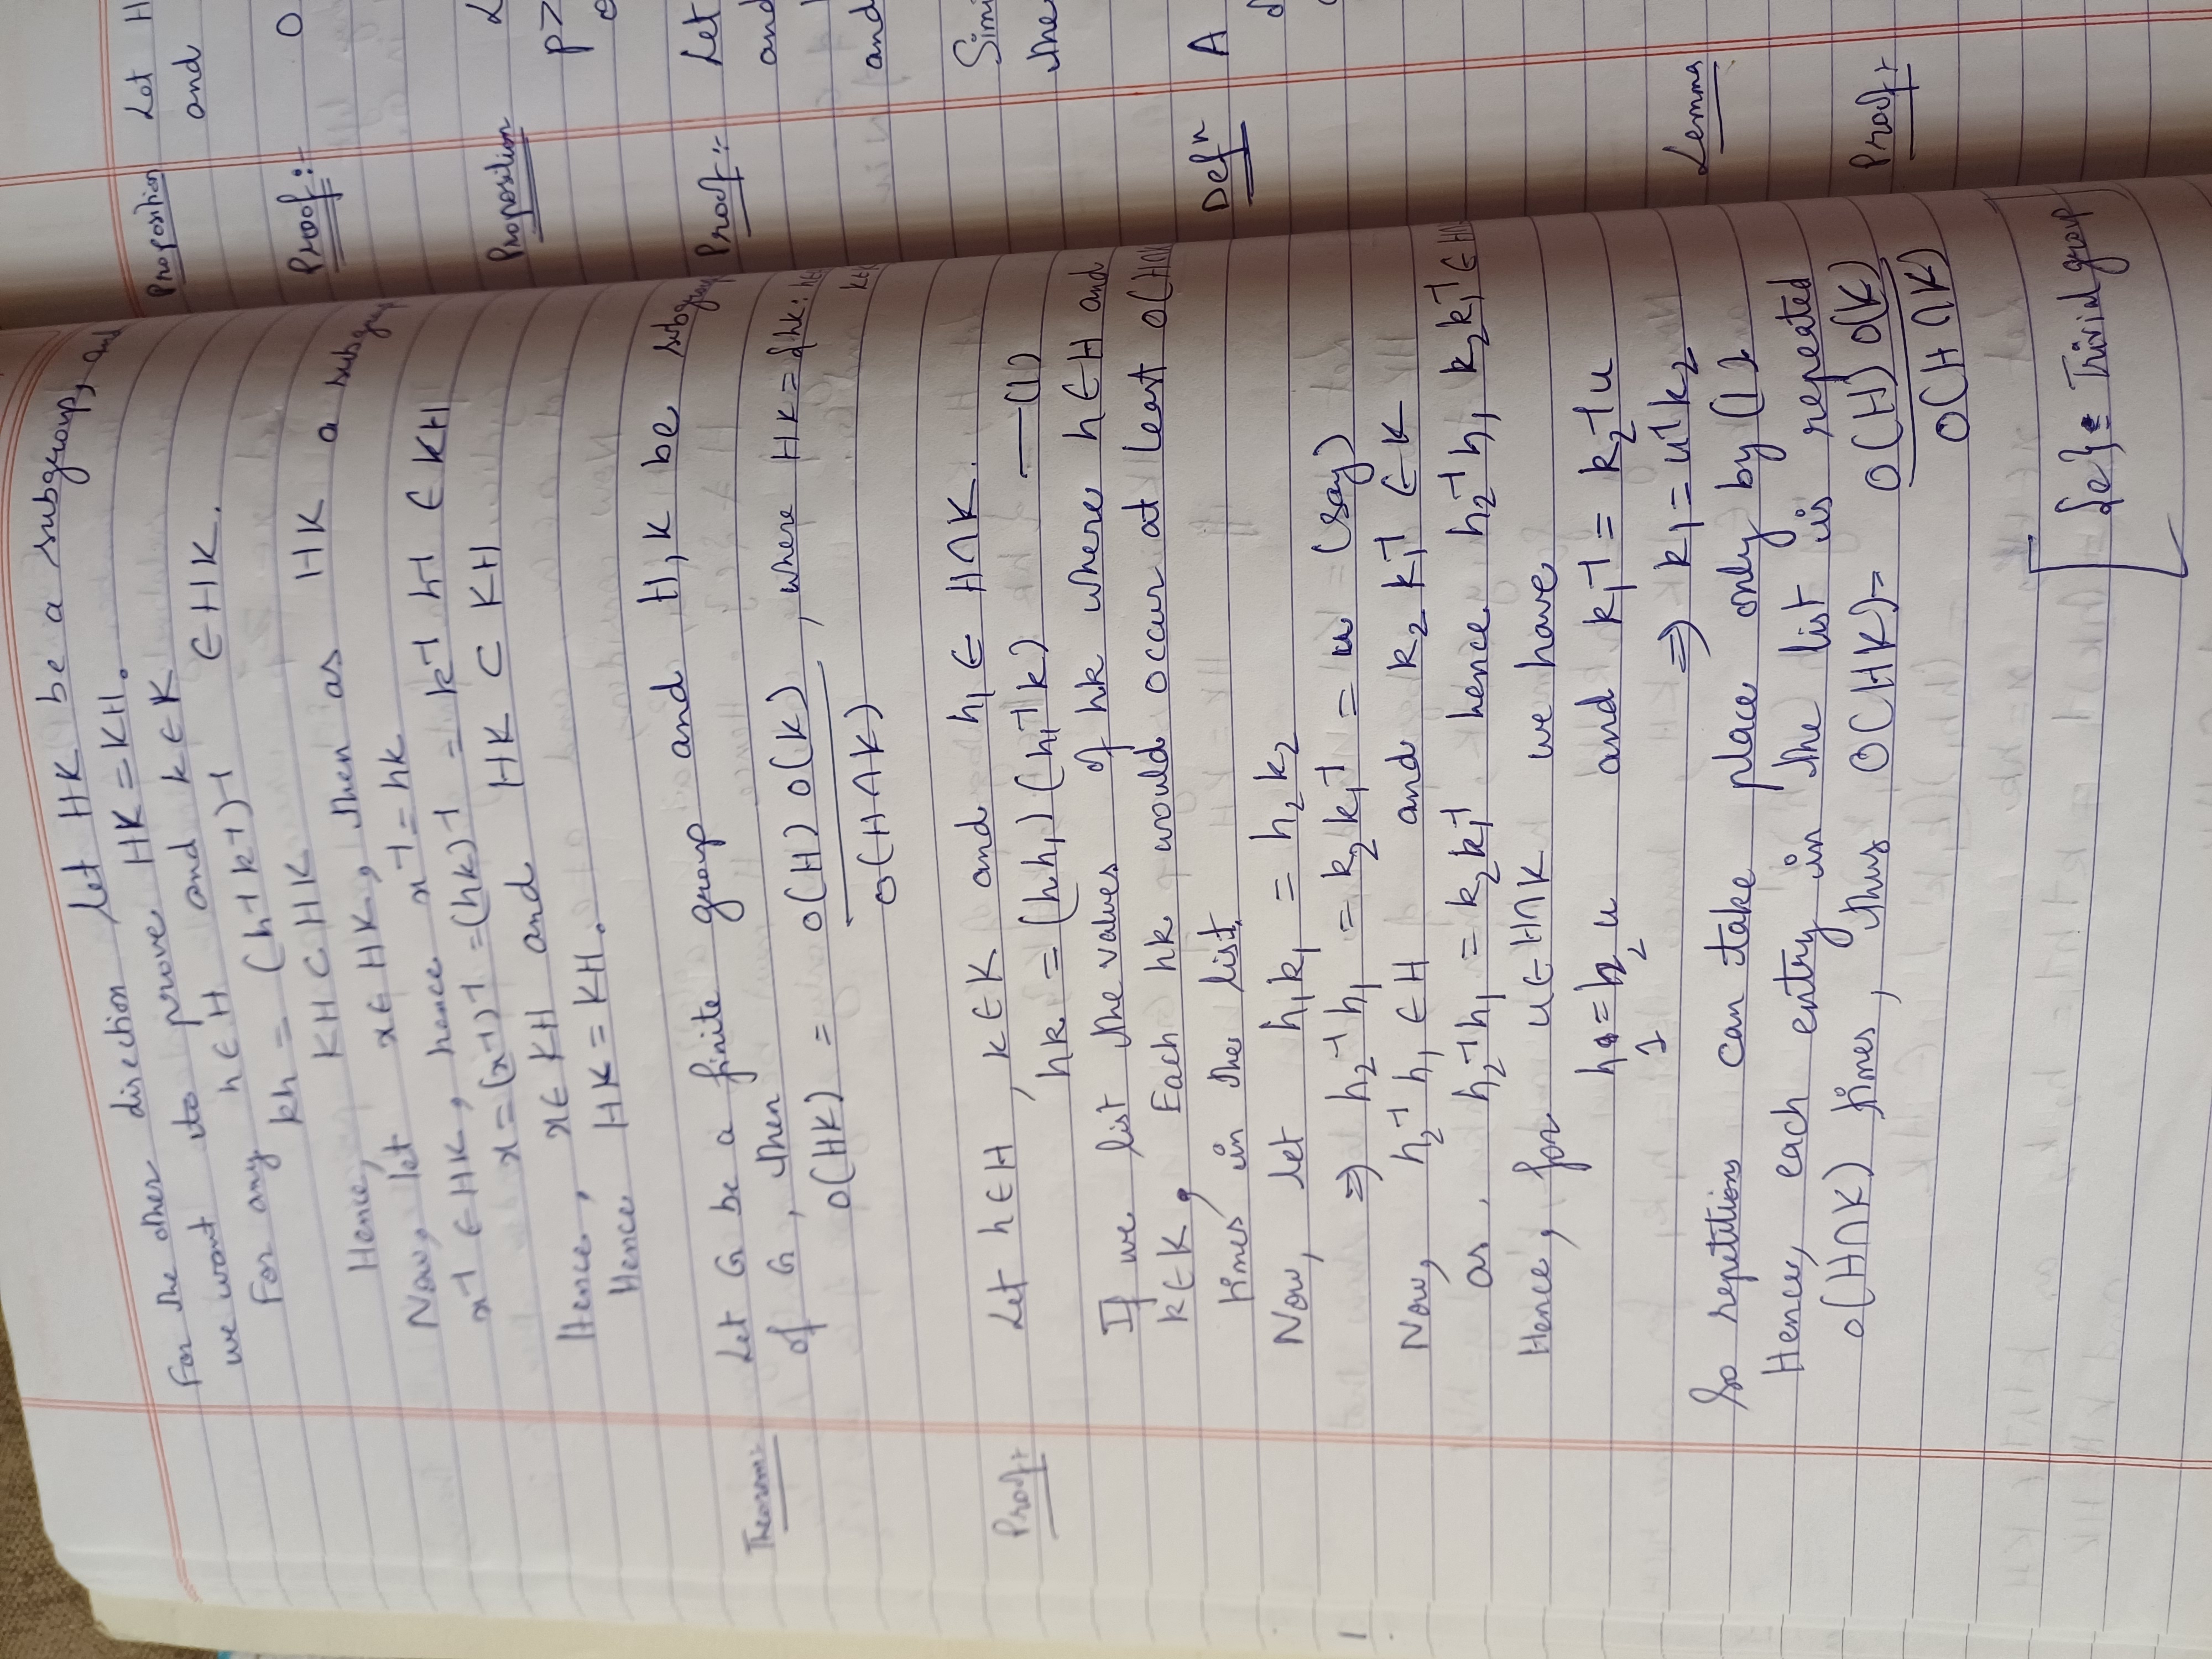 For the other direction let HK be a subgroup, and
we want to prove HK = KH.
For any h ∈ H and k ∈ K
kh = (h⁻¹k⁻¹)⁻¹ ∈ HK.
Hence, KH ⊂ HK
Now, let x ∈ HK, then as HK a subgroup
x⁻¹ ∈ HK, hence x⁻¹ = hk
x = (x⁻¹)⁻¹ = (hk)⁻¹ = k⁻¹h⁻¹ ∈ KH
Hence, x ∈ KH and HK ⊂ KH
Hence HK = KH.
Theorem Let G be a finite group and H, K be subgroup
of G, then
o(HK) = o(H) o(K) / o(H∩K), where HK = {hk: h∈H
k∈K
Proof Let h ∈ H, k ∈ K and h₁ ∈ H∩K.
hk = (hh₁)(h₁⁻¹k) —(1)
If we list the values of hk where h ∈ H and
k ∈ K, Each hk would occur at least o(H∩K
times in the list.
Now, let h₁k₁ = h₂k₂
⇒ h₂⁻¹h₁ = k₂k₁⁻¹ = u (say)
Now, h₂⁻¹h₁ ∈ H and k₂k₁⁻¹ ∈ K
as, h₂⁻¹h₁ = k₂k₁⁻¹ hence h₂⁻¹h₁, k₂k₁⁻¹ ∈ H∩
Hence, for u ∈ H∩K we have
h₁ = h₂u and k₁⁻¹ = k₂⁻¹u
⇒ k₁ = u⁻¹k₂
So repetitions can take place only by (1)
Hence, each entry in the list is repeated
o(H∩K) times, thus O(HK) = O(H) O(K) / O(H∩K)
{e} = Trivial group
Proposition Let H
and
Proof:- O
Proposition
p>
Proof:- Let
and
and
Simi
the
Defⁿ A
Lemma
Proof